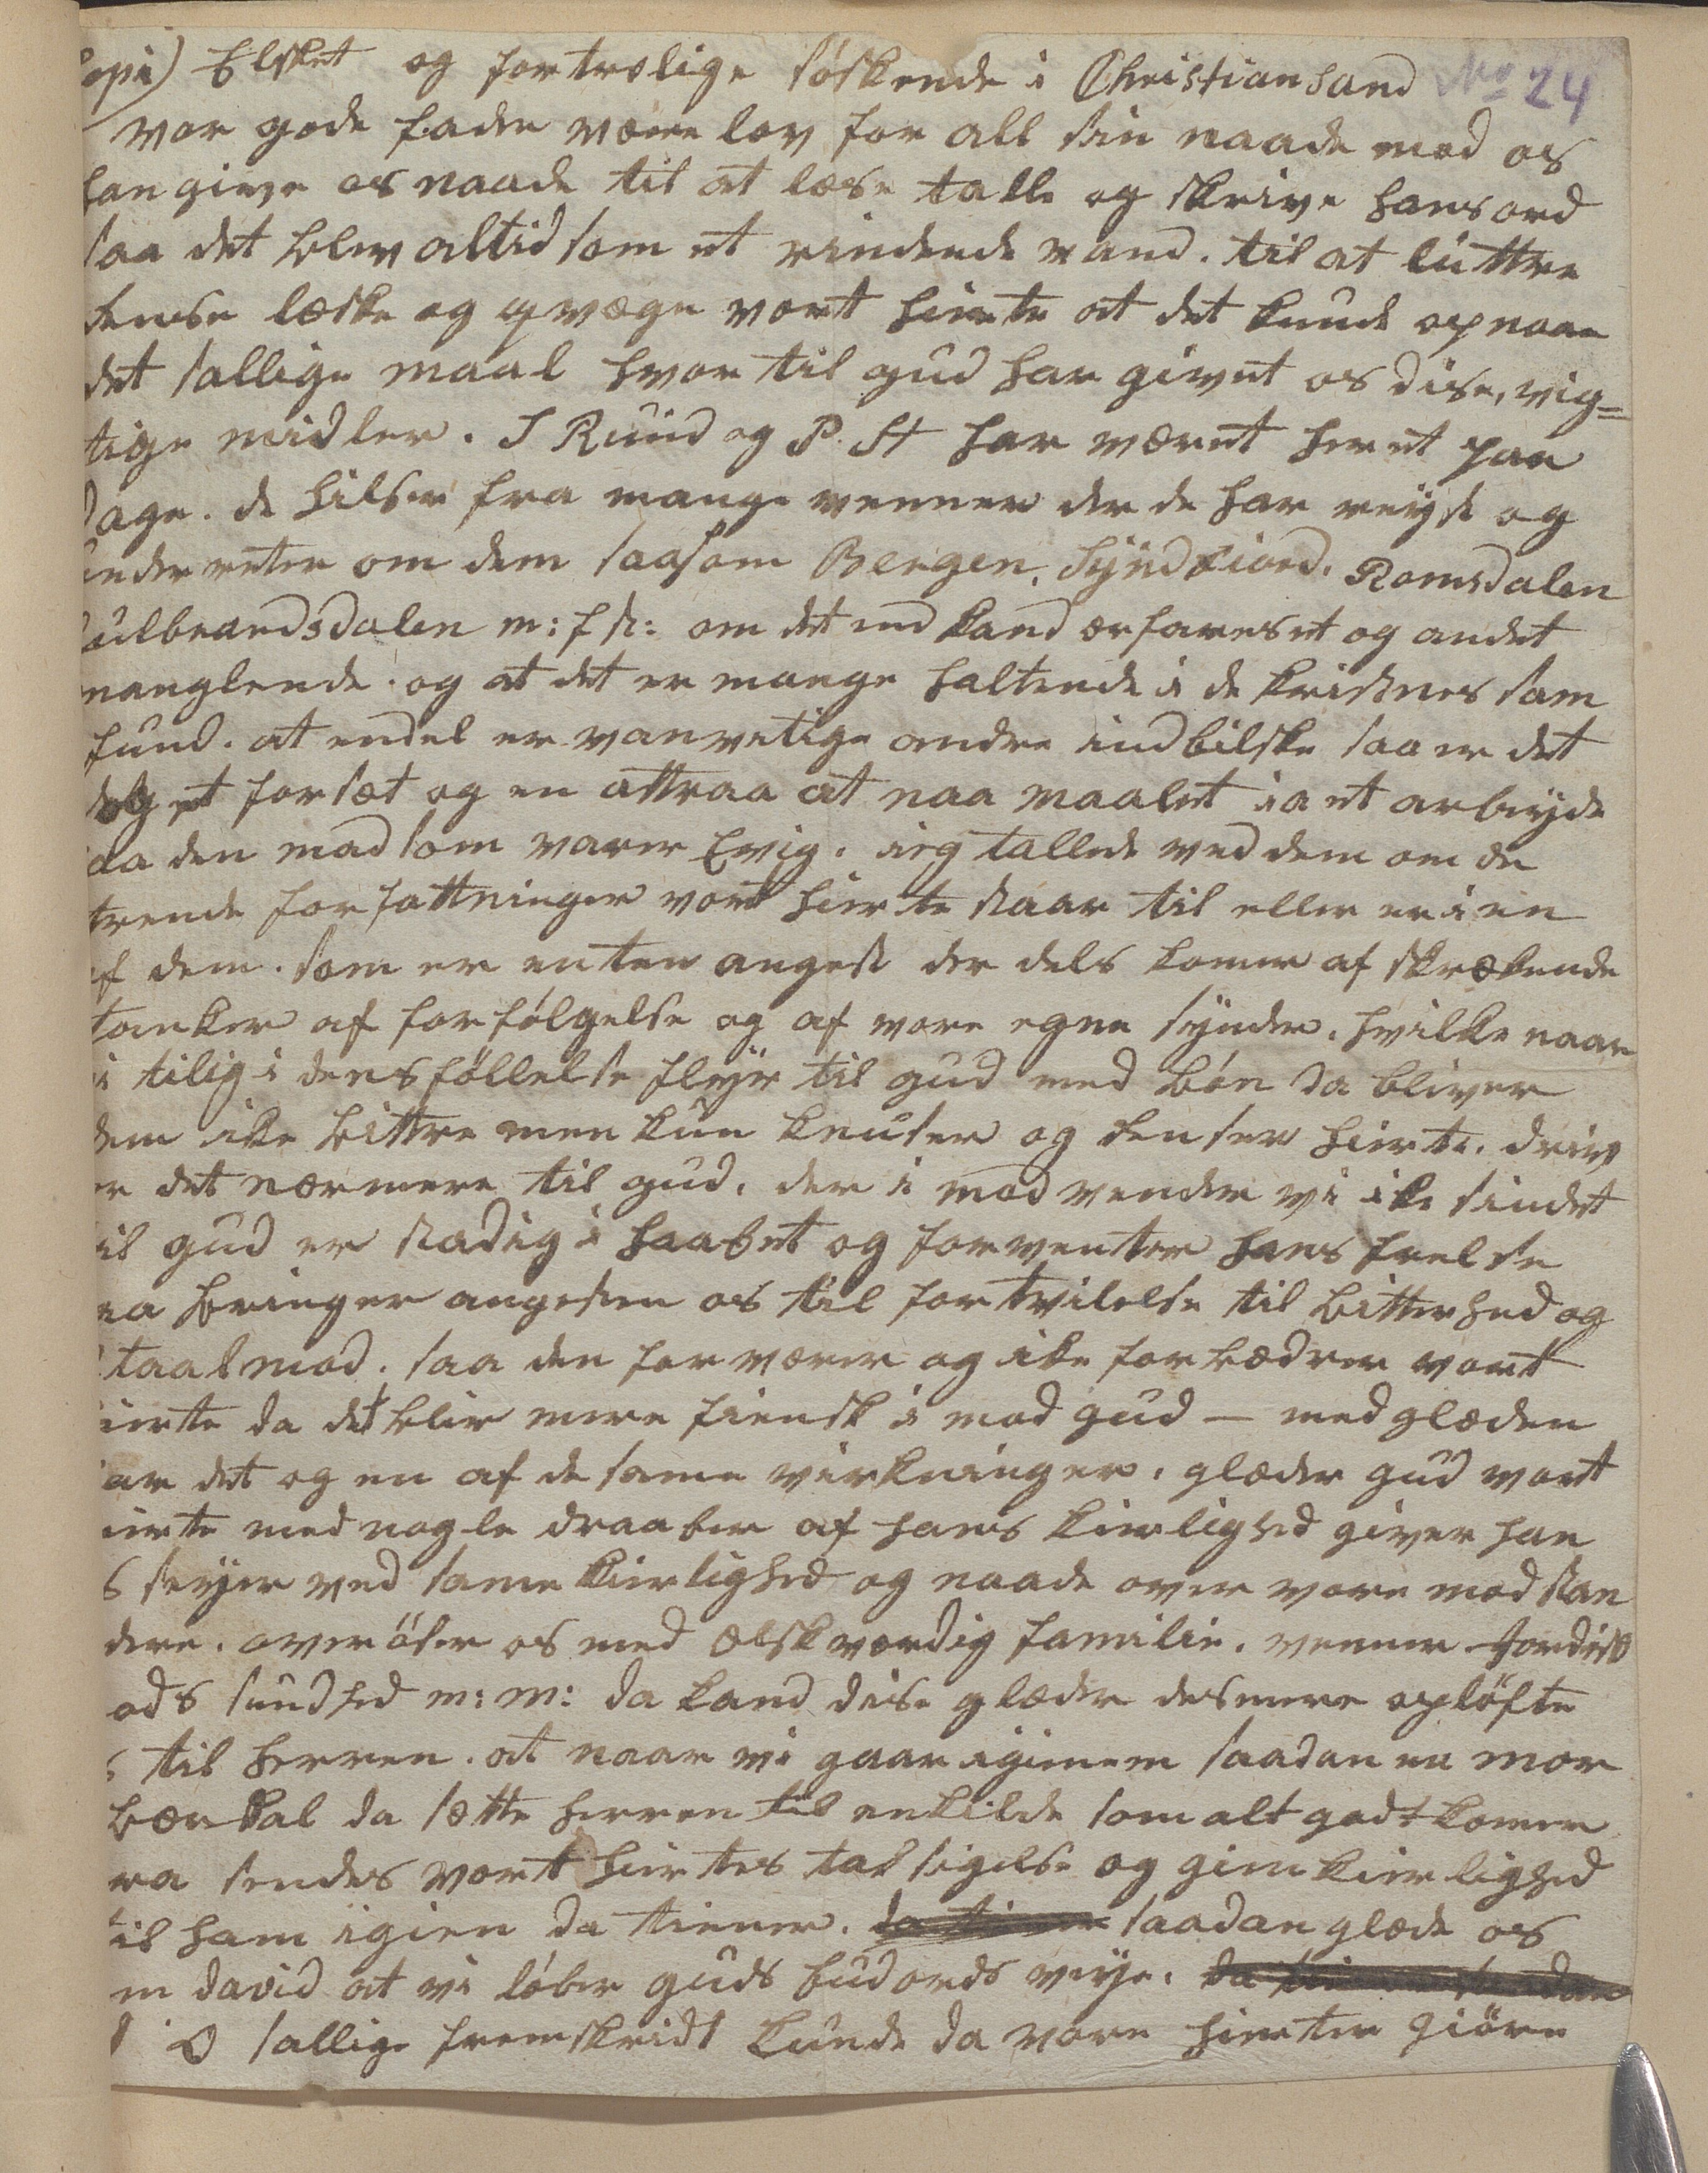 opi) Elsket og fortrolige søskende i Christiansand No 24
vor gode fader være lov for all sin naade mod os
han give os naade til at læse talle og skrive hans ord
saa det blev altid som et rindende vand. til at luttre
dense læske og qvæge vort hierte at det kunde opnaae
det sallige maal hvor til gud har givet os dise, vig=
tige midler. I Ruud og P. St har været her et par
dage. de hilser fra mange venner der de har reist og
under reter om dem saasom Bergen, Syndfiord. Romsdalen
ulbrandsdalen m: fl: om det end kand erfares et og andet
manglende. og at det er mange haltende i de kristnes sam
fund. at endel er vanvetige andre indbilske saa er det
dog et forsæt og en attraa at naa maalet ia et arbeyde
aa den mad som varer Evig. ieg tallede ved dem om de
trende forfattninger vort hierte staar til eller er i en
af dem. som er enten angest der dels komer af skrækende
tanker af forfølgelse og af vore egne synder. hvilke naar
i tilig i dens føllelse flyr til gud med bøn da bliver
dem ike bittre men kun knuser og denser hierte. driv
er det nærmere til gud. der i mod vender vi ike sindet
til gud er stadig i haabet og forventer hans frelse
aa bringer angesten os til fortvilelse til bitterhed og
taalmod. saa den forværer og ike forbædrer vort
ierte da det blir mere fiensk i mod gud — med glæden
ar det og en af de same virkninger. glæder gud vort
ierte med nogle draaber af hans kierlighed giver han
s seyer ved same kierlighed og naade over vore mod stan
dere. over øser os med ælskværdig familie. venner Jordisk
ods sundhed m: m: da kand dise glæder desmere opløfte
s til herren. at naar vi gaar igienem saadan en mor
bær dal da sætte herren til en kilde som alt godt komer
ra sendes vort hiertes tak sigelse og gien kierlighed
til ham igien da tiener. saadan glæde os
m david at vi løber guds budords veye.
O sallige fremskridt kunde da vore hierter giøre